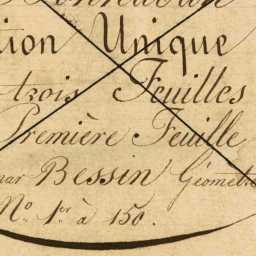 tion Unique
trois Feuilles
Première Feuille
par Bessin Géomètre
N.º 1.er à 150.